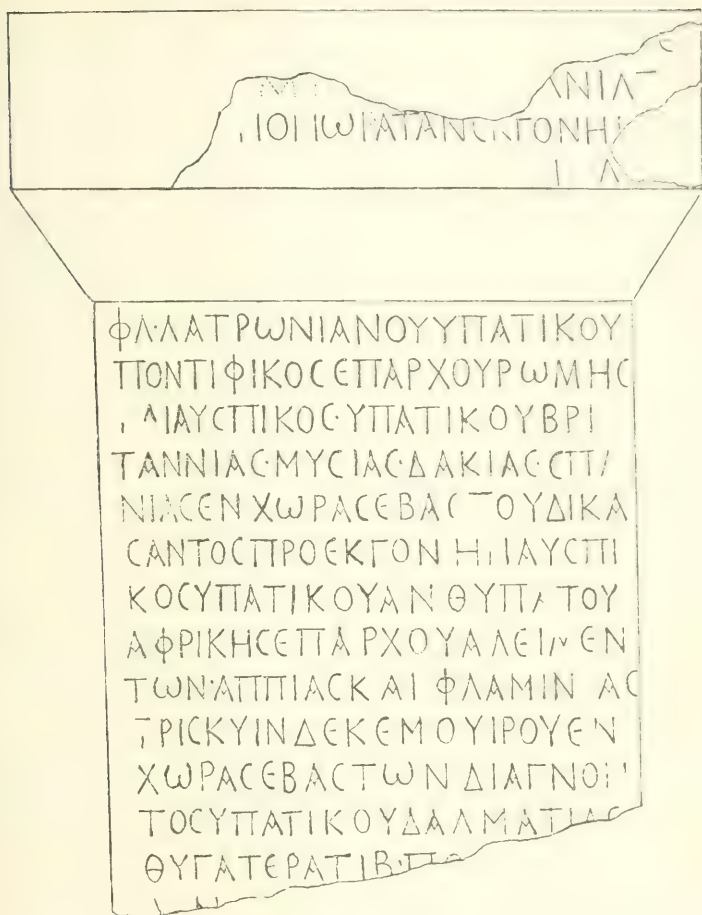 ΑΝΙΑ
ΓΟΝΗ
ΦΛ·ΛΑΤΡΩΝΙΑΝΟΥΥΠΑΤΙΚΟΥ
ΠΟΝΤΙΦΙΚΟϹЄΠΑΡΧΟΥΡΩΜΗϹ
ΙΑΥϹΠΙΚΟϹ·ΥΠΑΤΙΚΟΥΒΡΙ
ΤΑΝΝΙΑϹ·ΜΥϹΙΑϹ·ΔΑΚΙΑϹ·ϹΠ
ΝΙΑϹЄΝΧΩΡΑϹЄΒΑϹΤΟΥΔΙΚΑ
ϹΑΝΤΟϹΠΡΟЄΚΓΟΝΗ ΙΑΥϹΠΙ
ΚΟϹΥΠΑΤΙΚΟΥΑΝΘΥΠΑΤΟΥ
ΑΦΡΙΚΗϹЄΠΑΡΧΟΥΑΛЄΙΜЄΝ
ΤΩΝ·ΑΠΠΙΑϹΚΑΙΦΛΑΜΙΝ ΑϹ
ΤΡΙϹΚΥΙΝΔЄΚЄΜΟΥΙΡΟΥЄΝ
ΧΩΡΑϹЄΒΑϹΤΩΝΔΙΑΓΝΟΙ
ΤΟϹΥΠΑΤΙΚΟΥΔΑΛΜΑΤΙΑϹ
ΘΥΓΑΤЄΡΑΤΙΒ·ΠΟ